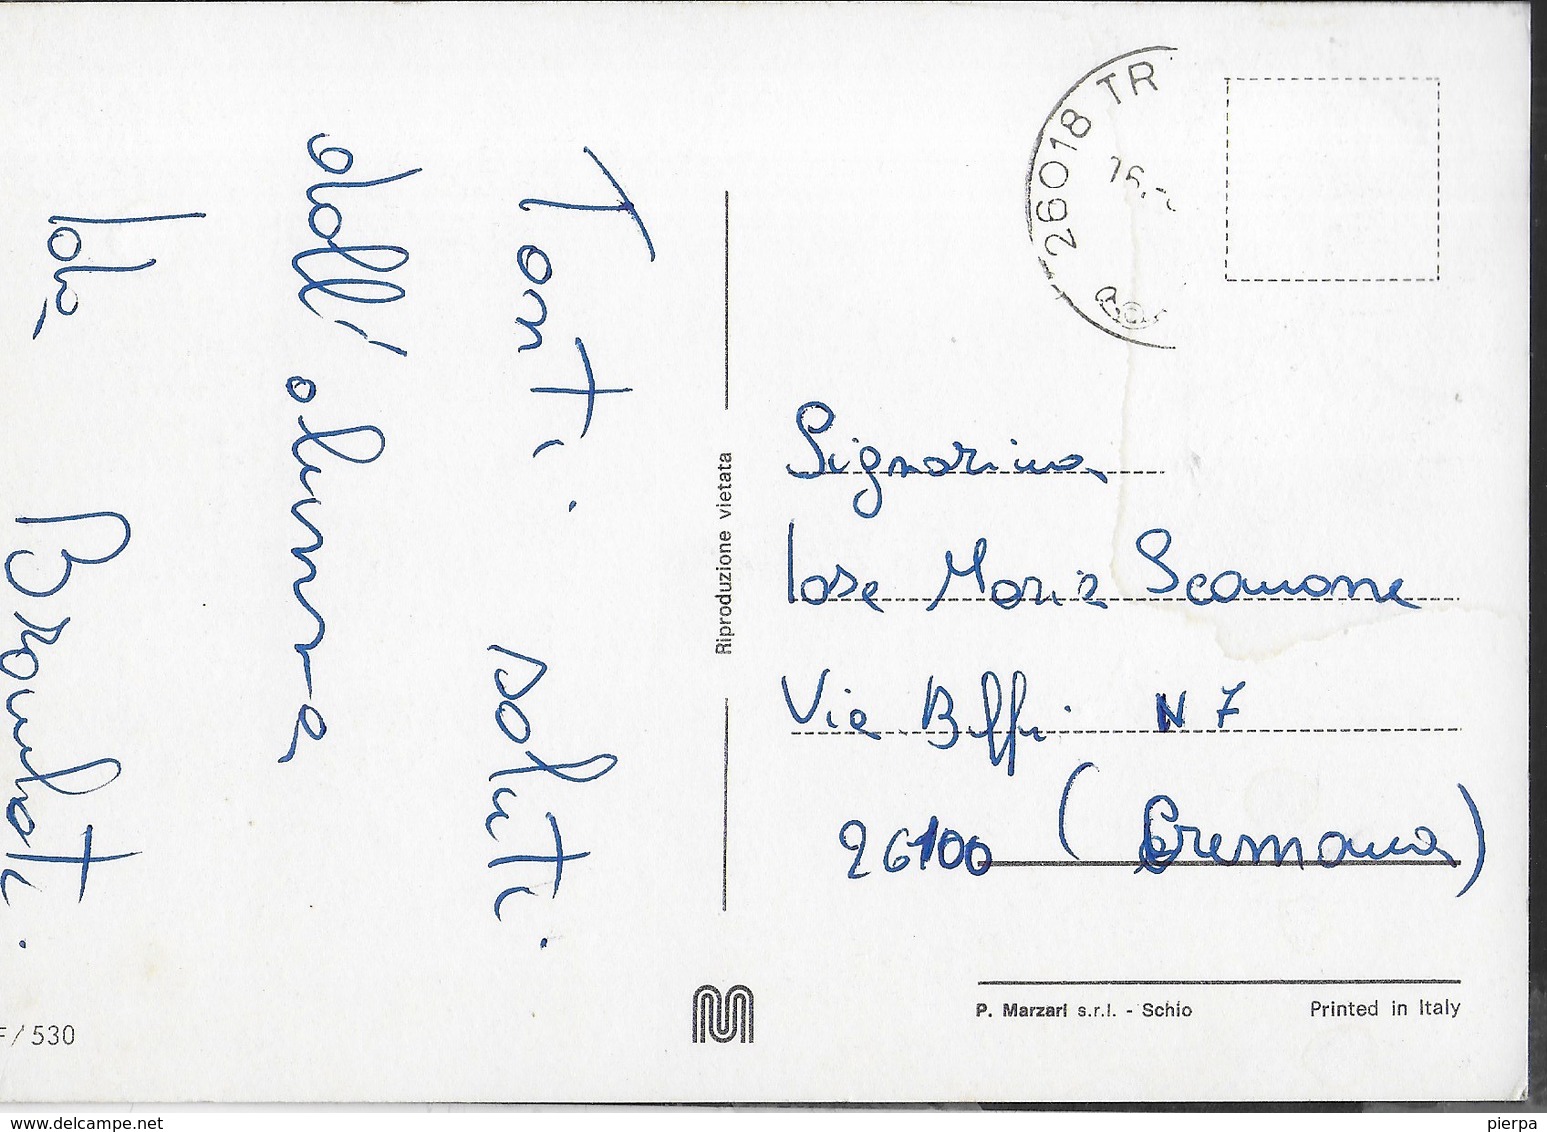 Tanti saluti
dall'alunna
Brambati
26018 TR
16.
Signorina
Rose Maria Scamone
Via Biffi N 7
26100 (Cremona)
Riproduzione vietata
P. Marzari s.r.l. - Schio
Printed in Italy
F/530
delcampe.net
pierpa